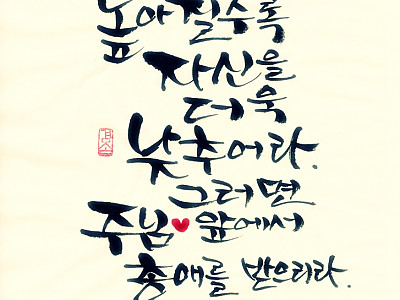 높아질수록
자신을
더욱
낮추어라.
그러면
주님 앞에서
총애를 받으리라.
겸손